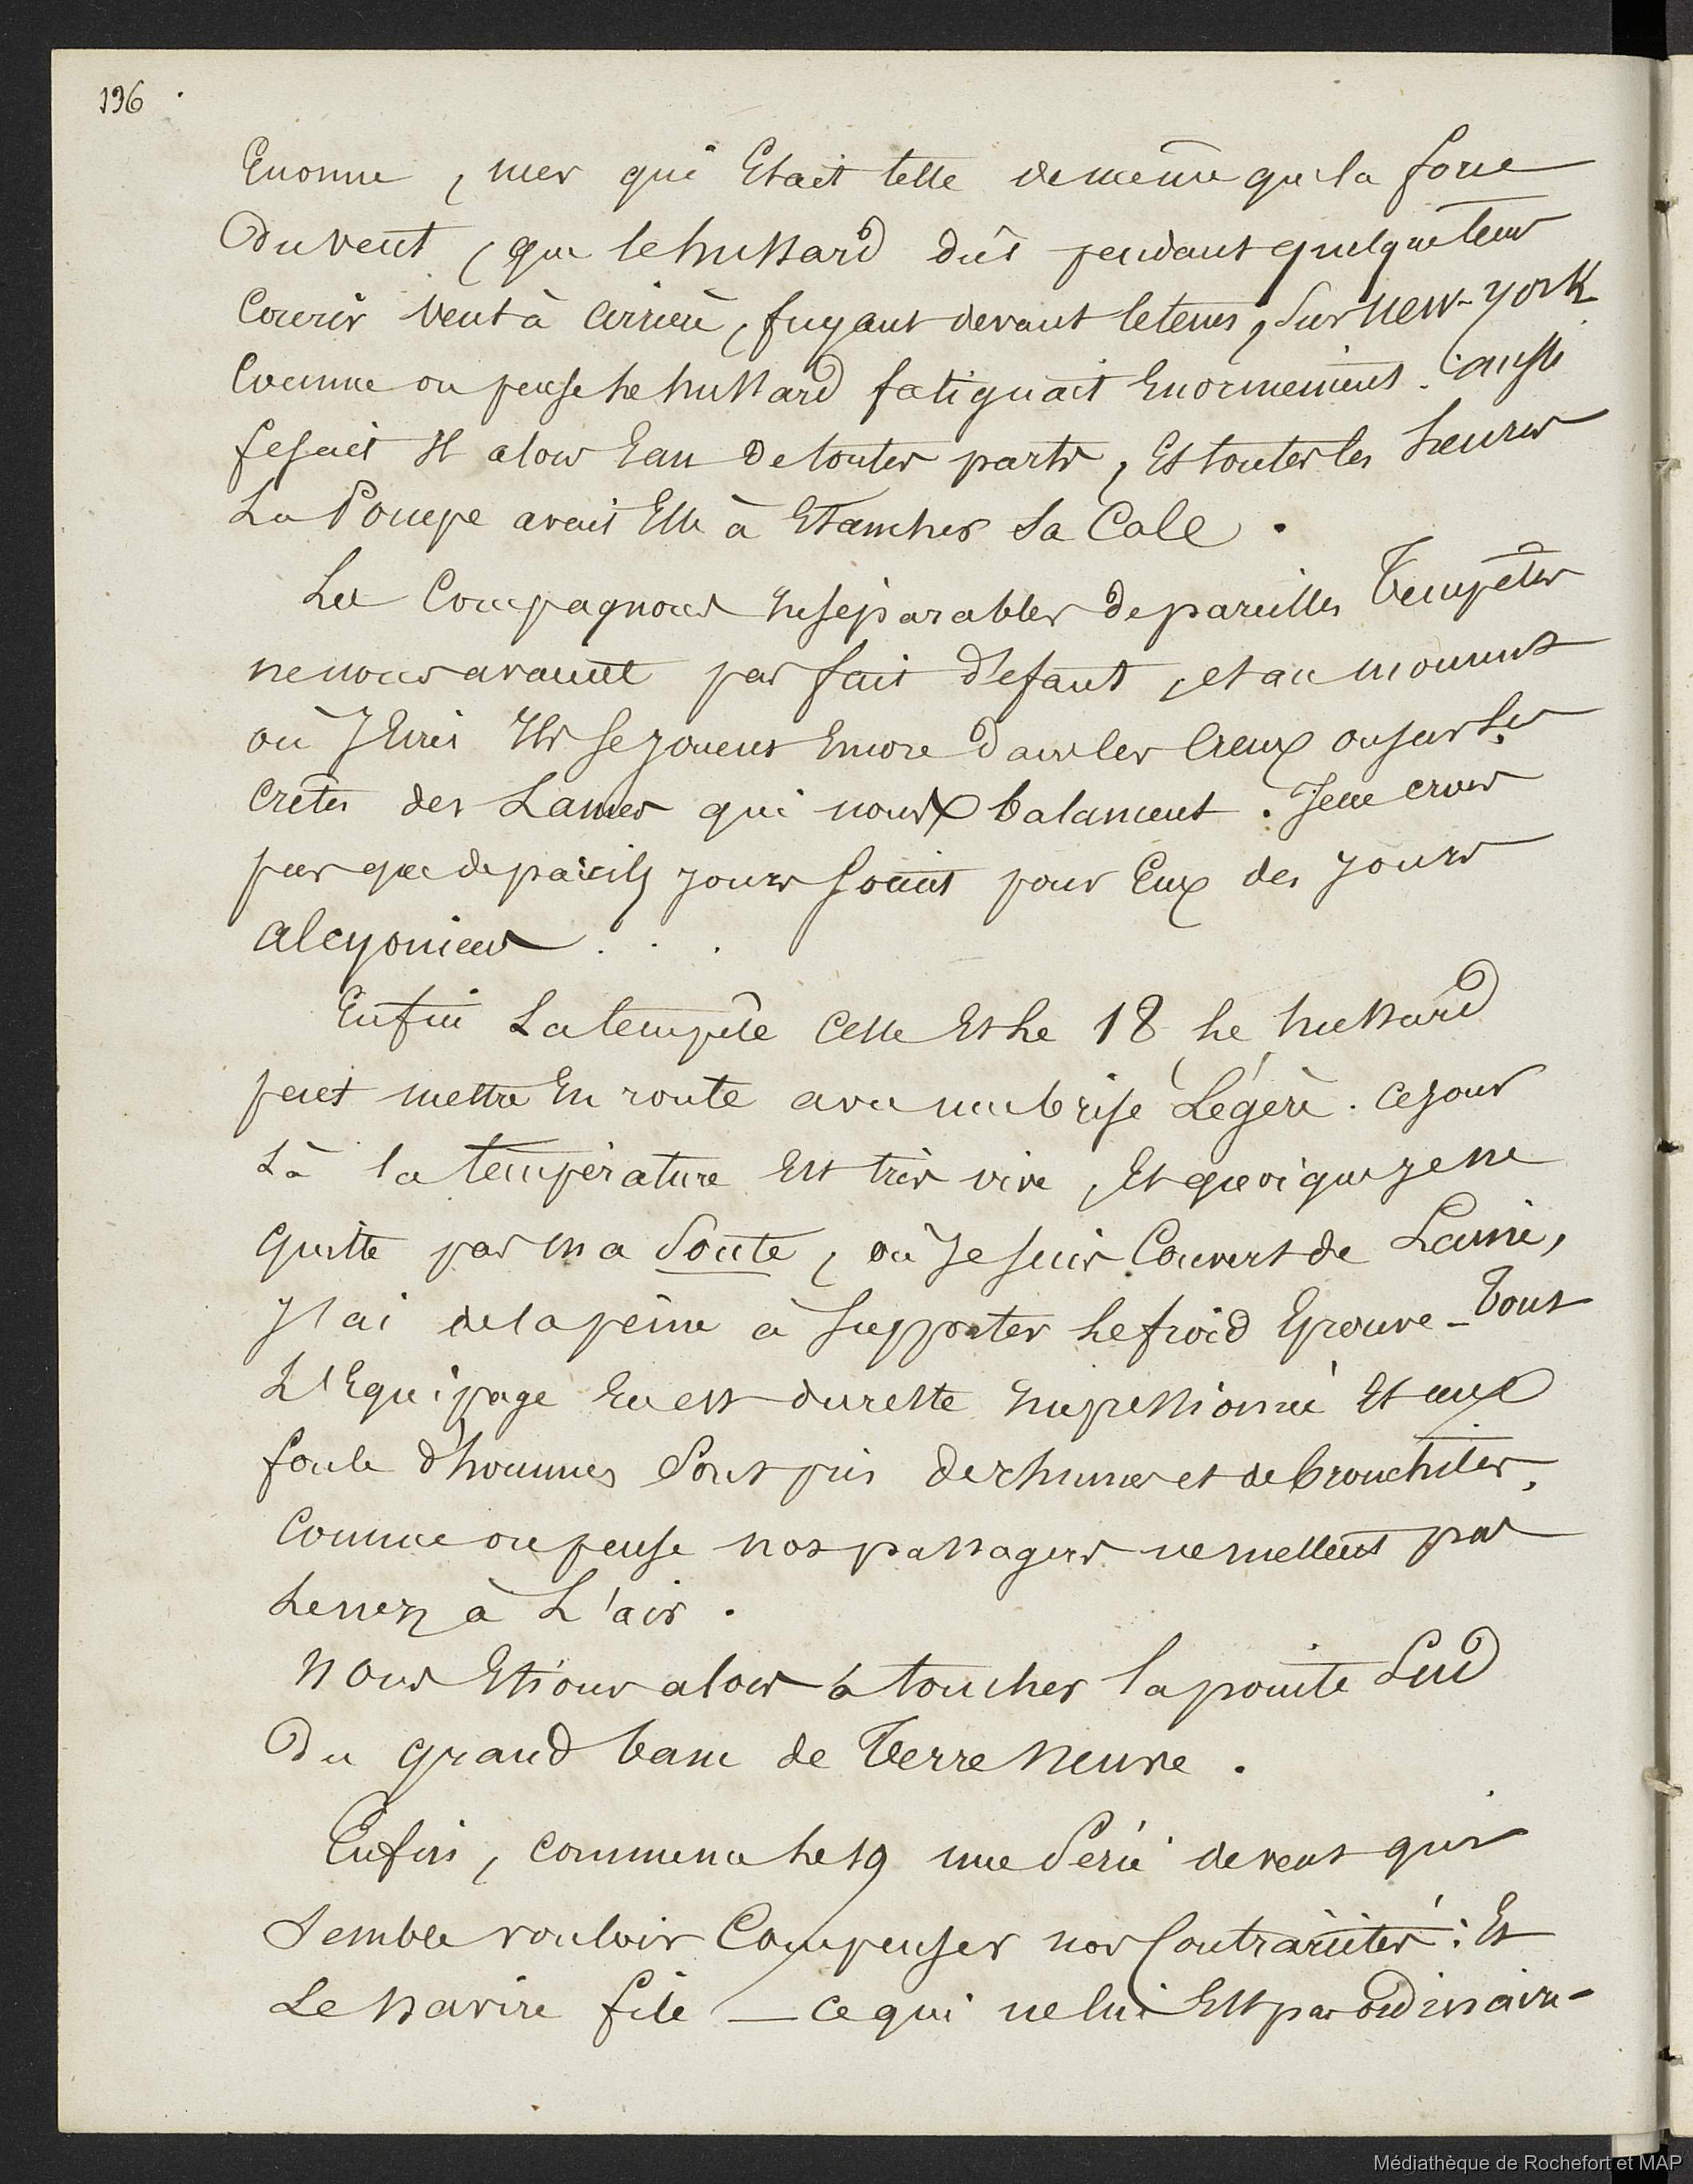 196
Enorme, mer qui Etait telle de même que la force
Du vent, que le hussard dût pendant quelque tems
Courir vent à arrière, fuyant devant le tems, Sur New-York
Comme on pense Le hussard fatiguait Enormement. aussi
fesait Il alors Eau De toutes parts, Et toutes les heures
La Pompe avait Elle à Etancher Sa Cale.
Les Compagnons Inséparables de pareilles Tempêtes
ne nous avaient pas fait défaut, et au moment
où J'écris Ils se jouent Encore dans les Creux ou sur Les
Crêtes des Lames qui nous balancent. Je ne crois
pas que de pareils jours soient pour Eux des jours
alcyoniens . . .
Enfin La tempête Cesse Et Le 18 Le hussard
peut mettre En route avec une brise Légère. Ce jour
Là la température Est très vive, Et quoique je ne
quitte pas ma Soute, où Je suis Couvert de Laine,
J'ai de la peine à Supporter Le froid Eprouvé - Tout
L'Equipage En est du reste Impressionné Et une
foule d'hommes Sont pris de rhumes et de bronchites,
Comme on pense nos passagers ne mettent pas
Le nez à L'air.
Nous Etions alors à toucher la pointe Sud
Du grand banc de Terre Neuve.
Enfin, commence Le 19 une Série de vents qui
Semble vouloir Compenser nos Contrariétés: Et
Le Navire file — ce qui ne lui Est pas ordinaire -
Médiathèque de Rochefort et MAP